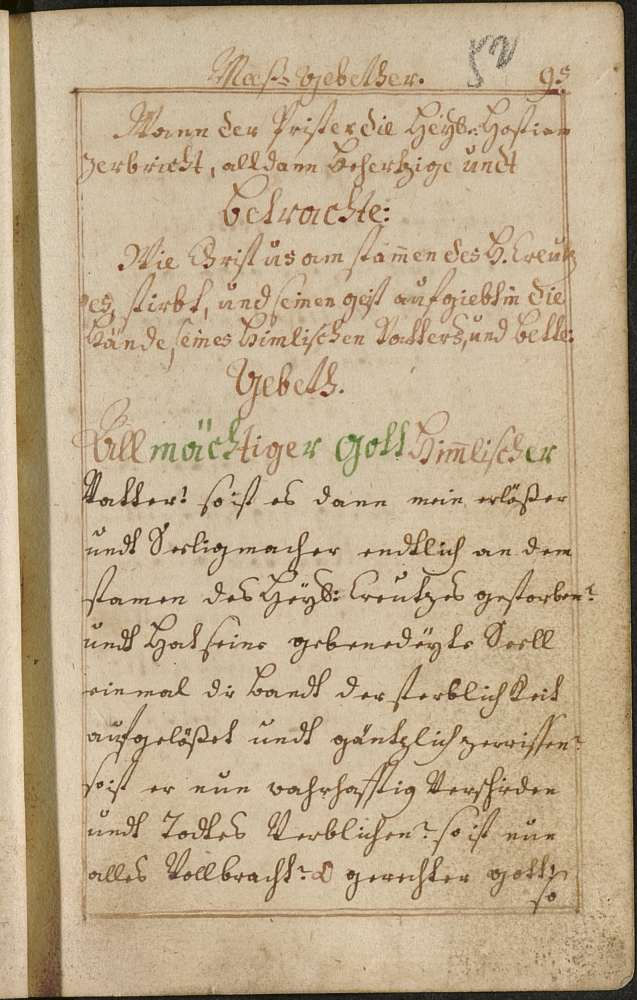 Meeß-gebether. 95
Wann der Prister die Heÿl: Hostien
zerbricht, alldann behertzige undt
betrachte:
Wie Christus am stam̄en des H. Creutz
es, stirbt, und seinen geist aufgiebt in die
Hände, seines Himlischen Vatters, und bette:
Gebeth.
Allmächtiger Gott Him̄lischer
Vatter! so ist es dann mein erlößer
undt Seeligmacher endtlich an dem
stamen des Heÿl: Creutzes gestorben?
undt Hat seine gebenedeÿte Seell
einmal die bandt der sterblichkeit
aufgelößet undt gäntzlich zerrissen?
so ist er nun wahrhafftig Verschieden
undt Todtes Verblichen? so ist nun
alles Vollbracht? O gerechter gott!
so